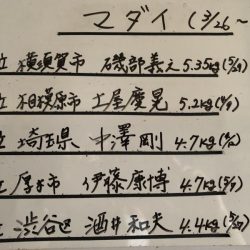 マダイ (3/26~
位 横須賀市 磯部義之 5.35kg(5/29)
位 相模原市 土屋慶晃 5.2kg
位 埼玉県 中澤剛 4.7kg
位 厚木市 伊藤康博 4.7kg(5/7)
位 渋谷区 酒井和夫 4.4kg